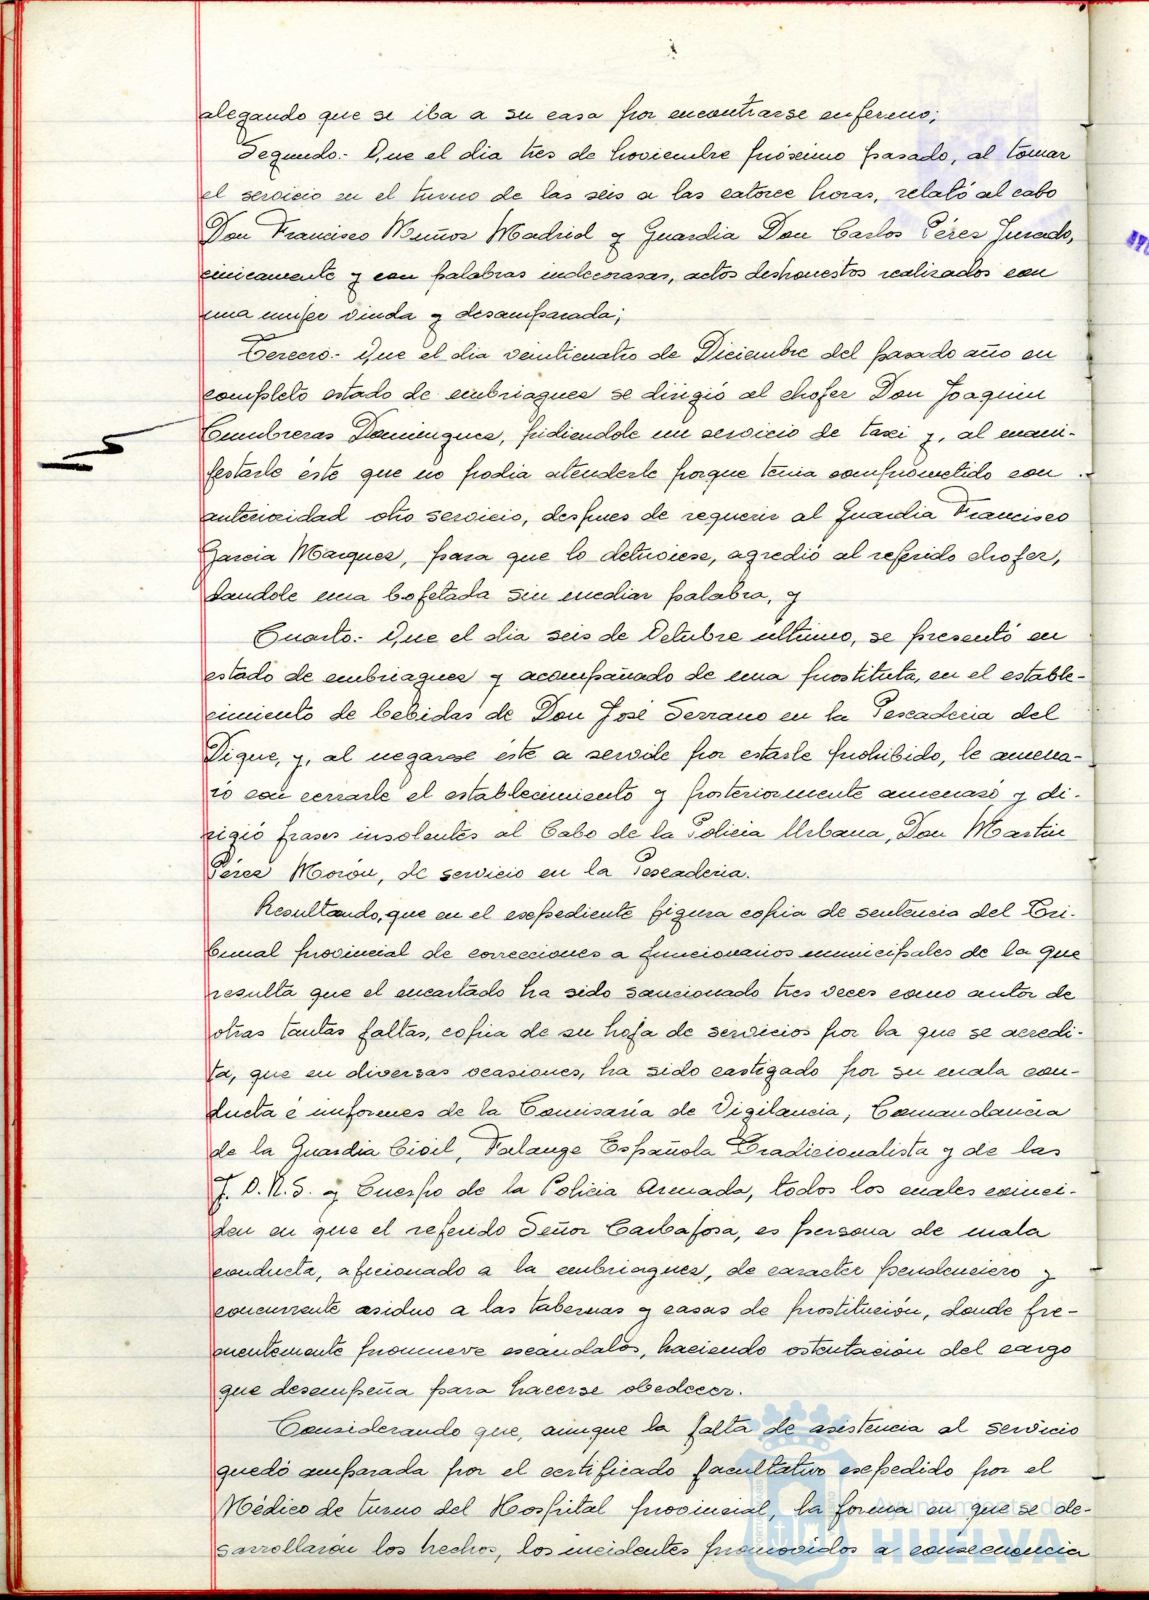 alegando que se iba a su casa por encontrarse enfermo;
Segundo.- Que el dia tres de Noviembre próximo pasado, al tomar
el servicio en el turno de las seis a las catorce horas, relató al cabo
Don Francisco Muñoz Madrid y Guardia Don Carlos Pérez Jurado,
cinicamente y con palabras indecorosas, actos deshonestos realizados con
una mujer viuda y desamparada;
Tercero.- Que el dia veinticuatro de Diciembre del pasado año en
completo estado de embriaguez se dirigió al chofer Don Joaquin
Cumbreras Dominguez, pidiendole un servicio de taxi y, al mani-
festarle éste que no podia atenderle porque tenia comprometido con
anterioridad otro servicio, despues de requerir al Guardia Francisco
Garcia Marquez, para que lo detuviese, agredió al referido chofer,
dandole una bofetada sin mediar palabra, y
Cuarto.- Que el dia seis de Octubre último, se presentó en
estado de embriaguez y acompañado de una prostituta, en el estable-
cimiento de bebidas de Don José Serrano en la Pescaderia del
Dique, y, al negarse éste a servile por estarle prohibido, le amena-
zó con cerrarle el establecimiento y posteriormente amenazó y di-
rigió frases insolentes al Cabo de la Policia Urbana, Don Martin
Pérez Morón, de servicio en la Pescaderia.
Resultando, que en el expediente figura copia de sentencia del Tri-
bunal provincial de correcciones a funcionarios municipales de la que
resulta que el encartado ha sido sancionado tres veces como autor de
otras tantas faltas, copia de su hoja de servicios por la que se acredi-
ta, que en diversas ocasiones, ha sido castigado por su mala con-
ducta é informes de la Comisaría de Vigilancia, Comandancia
de la Guardia Civil, Falange Española Tradicionalista y de las
J. O. N. S. y Cuerpo de la Policia Armada, todos los cuales coinci-
den en que el referido Señor Carbajosa, es persona de mala
conducta, aficionado a la embriaguez, de caracter pendenciero y
concurrente asiduo a las tabernas y casas de prostitución, donde fre-
cuentemente promueve escándalos, haciendo ostentación del cargo
que desempeña para hacerse obedecer.
Considerando que, aunque la falta de asistencia al servicio
quedó amparada por el certificado facultativo expedido por el
Médico de turno del Hospital provincial, la forma en que se de-
sarrollarón los hechos, los incidentes promovidos a consecuencia
Ayuntamiento de
HUELVA